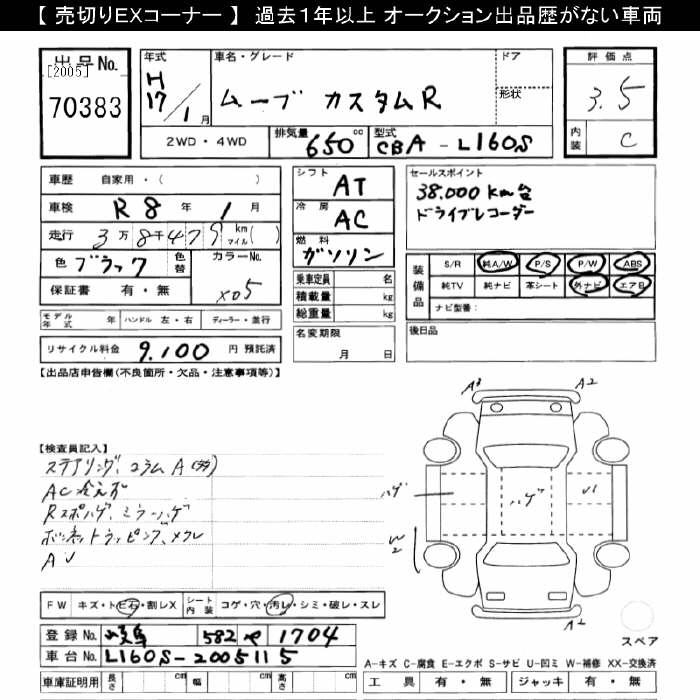 【 売切りEXコーナー 】 過去１年以上 オークション出品歴がない車両
出品No.
[2005]
70383
年式
H
17/1月
車名・グレード
ムーブ カスタムR
ドア
形状
2WD・4WD
排気量
650cc
型式
CBA-L160S
評価点
3.5
内装
C
車歴 自家用・( )
車検 R8年 1月
走行 3万8千479 km マイル( )
色 ブラック 色替
カラーNo.
X05
保証書 有・無
モデル年式 年 ハンドル 左・右 ディーラー・並行
リサイクル料金 9,100 円 預託済
シフト
AT
冷房
AC
燃料
ガソリン
乗車定員 名
積載量 kg
総重量 kg
名変期限
月 日
セールスポイント
38,000km台
ドライブレコーダー
装備品
S/R 純A/W P/S P/W ABS
純TV 純ナビ 革シート 外ナビ エアB
ナビ型番:
後日品
【出品店申告欄(不良箇所・欠品・注意事項等)】
【検査員記入】
ステアリング、コラムA
AC冷えず
Rスポハゲ、ミラーハゲ
ボンネットラッピング、メクレ
AU
A3 A2
ハゲ
ハゲ
U1
W2
A2
スペア
FW キズ・トビ石・割レX
シート内装 コゲ・穴・汚レ・シミ・破レ・スレ
登録No. 岐阜 582 や 1704
車台No. L160S-2005115
車庫証明用 長さ cm 幅 cm 高さ cm
A-キズ C-腐食 E-エクボ S-サビ U-凹ミ W-補修 XX-交換済
工具 有・無 ジャッキ 有・無